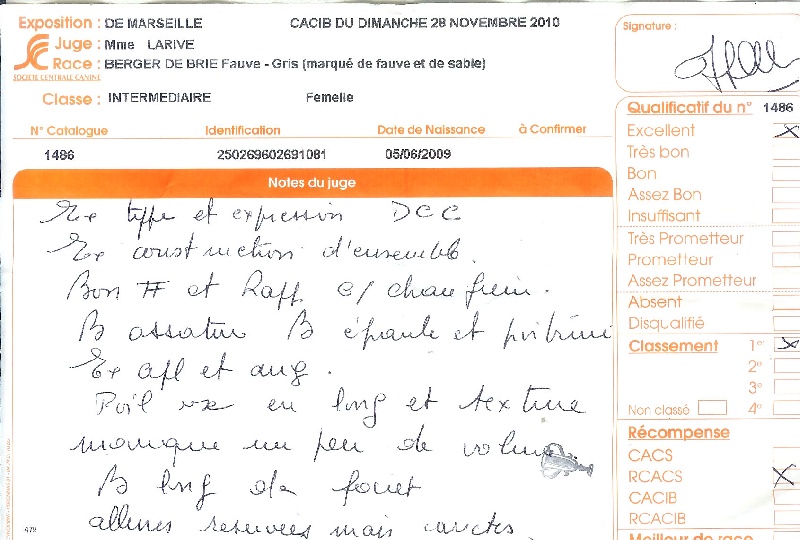 Exposition : DE MARSEILLE CACIB DU DIMANCHE 28 NOVEMBRE 2010
Juge : Mme LARIVE
Race : BERGER DE BRIE Fauve - Gris (marqué de fauve et de sable)
SOCIÉTÉ CENTRALE CANINE
Classe : INTERMEDIAIRE Femelle
N° Catalogue Identification Date de Naissance à Confirmer
1486 250269602691081 05/06/2009
Notes du juge
Ex type et expression DCC
Ex construction d'ensemble.
Bon # et Rapp c/ chanfrein.
B ossature B épaule et poitrine
Ex apl et ang.
Poil en long et texture
manque un peu de volume
B long de fouet
allures reservées mais correctes.
479
Signature :
Qualificatif du n° 1486
Excellent X
Très bon
Bon
Assez Bon
Insuffisant
Très Prometteur
Prometteur
Assez Prometteur
Absent
Disqualifié
Classement 1er X
2e
3e
Non classé 4e
Récompense
CACS
RCACS X
CACIB
RCACIB
Meilleur de race